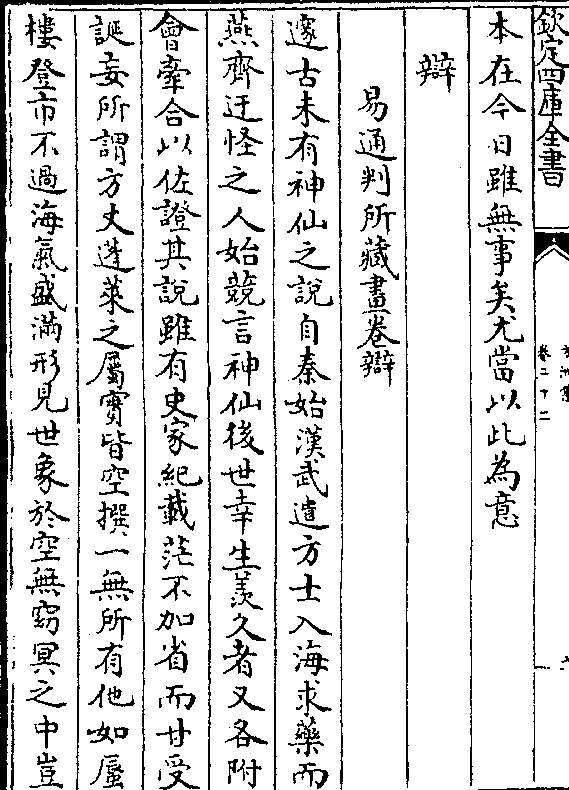 欽定四庫全書
卷二十二
本在今日雖無事矣尤當以此為意
辯
易通判所藏畫卷辯
邃古未有神仙之說自秦始漢武遣方士入海求藥而
燕齊迂怪之人始競言神仙後世幸生羨久者又各附
會牽合以佐證其說雖有史家紀載茫不加省而甘受
誕妄所謂方丈蓬萊之屬實皆空撰一無所有他如蜃
樓登市不過海氣盛滿形見世象於空無窈冥之中豈